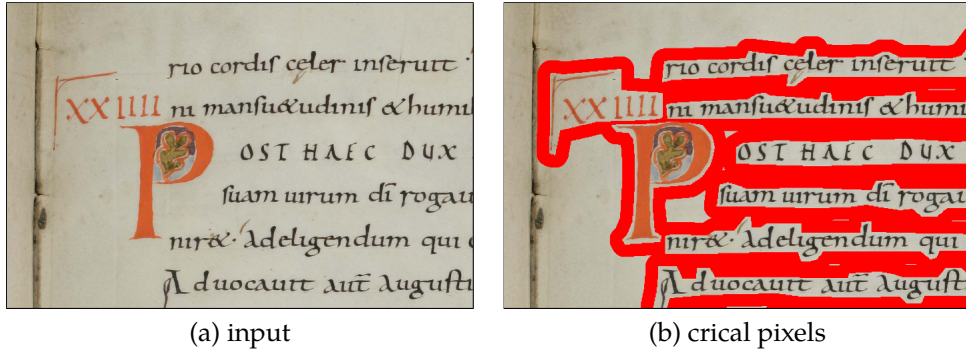 rio cordis celer inseruit
XXIIII ni mansu&udinis & humil
P
OST HAEC DUX
suam uirum dī rogau
nir&· Adeligendum qui
Aduocauit aut̄ Augusti
(a) input
rio cordis celer inseruit
XXIIII ni mansu&udinis & humil
P
OST HAEC DUX
suam uirum dī rogau
nir&· Adeligendum qui
Aduocauit aut̄ Augusti
(b) crical pixels